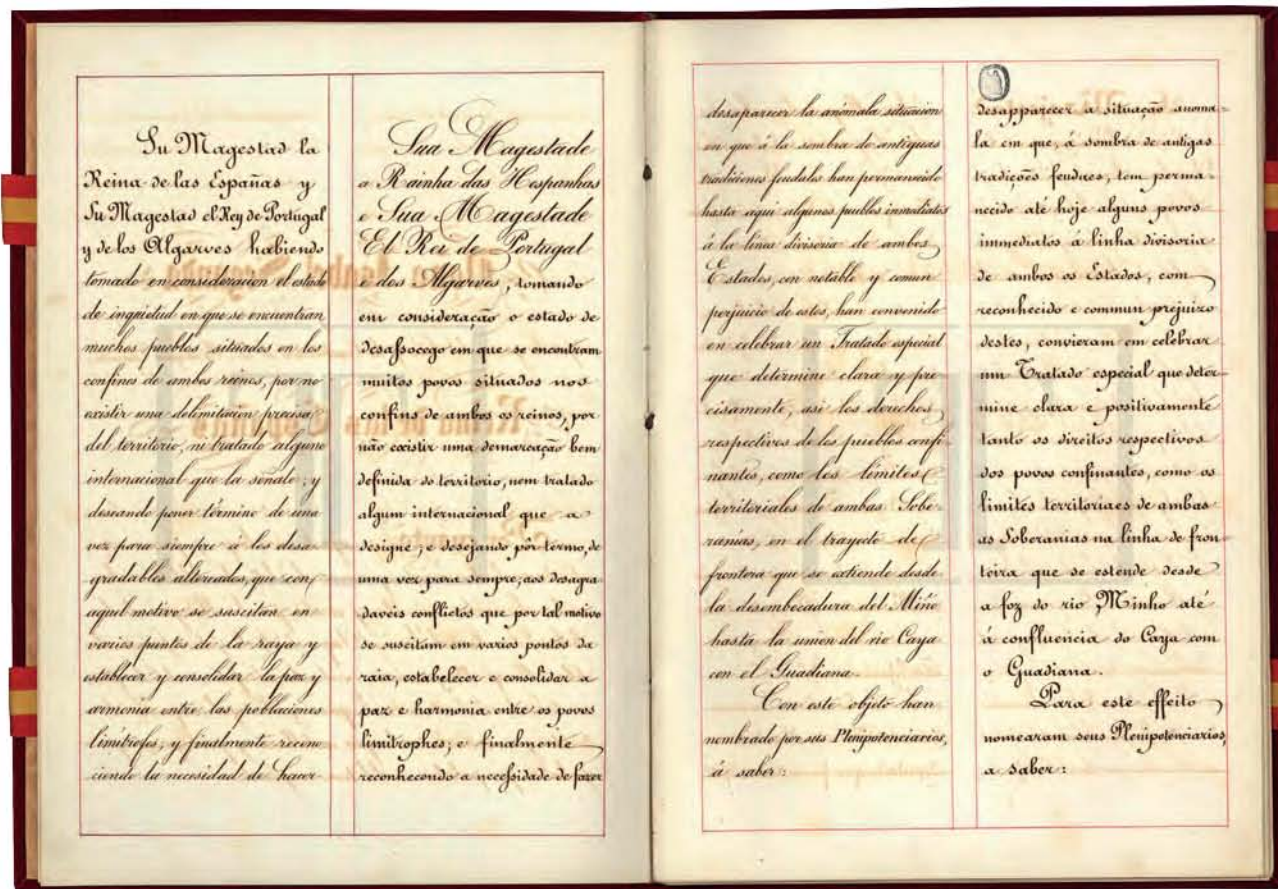 Su Magestad la
Reina de las Españas y
Su Magestad el Rey de Portugal
y de los Algarves habiendo
tomado en consideracion el estado
de inquietud en que se encuentran
muchos pueblos situados en los
confines de ambos reinos, por no
existir una delimitacion precisa
del territorio, ni tratado alguno
internacional que la señale; y
deseando poner término de una
vez para siempre á los desa-
gradables altercados, que con
aquel motivo se suscitan en
varios puntos de la raya y
establecer y consolidar la paz y
armonia entre las poblaciones
limítrofes, y finalmente recono
ciendo la necesidad de hacer
Sua Magestade
a Rainha das Hespanhas
e Sua Magestade
El Rei de Portugal
e dos Algarves, tomando
em consideração o estado de
desassocego em que se encontram
muitos povos situados nos
confins de ambos os reinos, por
não existir uma demarcação bem
definida do territorio, nem tratado
algum internacional que a
designe; e desejando pôr termo, de
uma vez para sempre, aos desagra
daveis conflictos que por tal motivo
se suscitam em varios pontos da
raia, estabelecer e consolidar a
paz e harmonia entre os povos
limitrophes; e finalmente
reconhecendo a necessidade de fazer
desaparecer la anómala situacion
en que á la sombra de antiguas
tradiciones feudales han permanecido
hasta aqui algunos pueblos inmediatos
á la línea divisoria de ambos
Estados, con notable y comun
perjuicio de estos, han convenido
en celebrar un Tratado especial
que determine clara y pre
cisamente, asi los derechos
respectivos de los pueblos confi-
nantes, como los límites
territoriales de ambas Sobe-
ranías, en el trayecto de
frontera que se extiende desde
la desembocadura del Miño
hasta la union del rio Caya
con el Guadiana.
Con este objeto han
nombrado por sus Plenipotenciarios,
á saber:
desapparecer a situação anoma-
la em que, á sombra de antigas
tradições feudaes, tem perma-
necido até hoje alguns povos
immediatos á linha divisoria
de ambos os Estados, com
reconhecido e commun prejuizo
destes, convieram em celebrar
um Tratado especial que deter-
mine clara e positivamente
tanto os direitos respectivos
dos povos confinantes, como os
limites territoriaes de ambas
as Soberanias na linha de fron
teira que se estende desde
a foz do rio Minho até
á confluencia do Caya com
o Guadiana.
Para este effeito
nomearam seus Plenipotenciarios,
a saber: